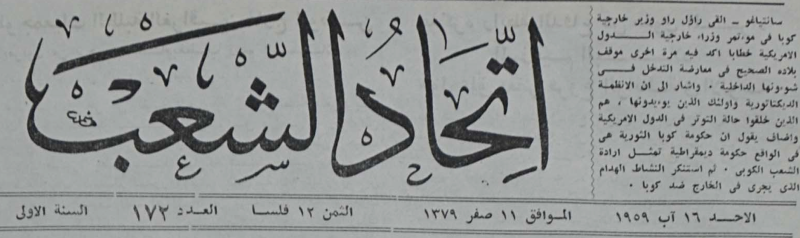 سانتياغو ـ القى راؤل راو وزير خارجية
كوبا فى مؤتمر وزراء خارجية الـدول
الامريكية خطابا اكد فيه مرة اخرى موقف
بلاده الصحيح في معارضة التدخل فـــى
شؤونها الداخلية ٠ واشار الى ان الانظمة
الديكتاتورية واولئك الذين يؤيدونها ، هم
الذين خلقوا حالة التوتر في الدول الامريكية
واضاف يقول ان حكومة كوبا الثورية هى
في الواقع حكومة ديمقراطية تمثـل ارادة
الشعب الكوبى ٠ ثم استنكر النشاط الهدام
الذى يجرى فى الخارج ضد كوبا ٠
اتحاد الشعب
الاحـد ١٦ آب ١٩٥٩ الموافق ١١ صفر ١٣٧٩ الثمن ١٢ فلسا العـدد ١٧٢ السنة الاولى